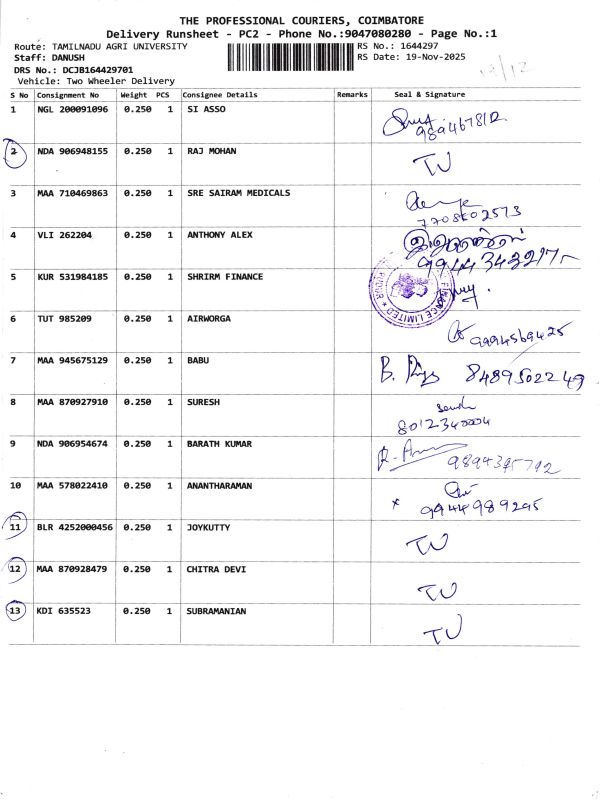 THE PROFESSIONAL COURIERS, COIMBATORE
Delivery Runsheet - PC2 - Phone No.:9047080280 - Page No.:1
Route: TAMILNADU AGRI UNIVERSITY RS No.: 1644297
Staff: DANUSH RS Date: 19-Nov-2025
DRS No.: DCJB164429701
Vehicle: Two Wheeler Delivery
S No Consignment No Weight PCS Consignee Details Remarks Seal & Signature
1 NGL 200091096 0.250 1 SI ASSO
2 NDA 906948155 0.250 1 RAJ MOHAN
3 MAA 710469863 0.250 1 SRE SAIRAM MEDICALS
4 VLI 262204 0.250 1 ANTHONY ALEX
5 KUR 531984185 0.250 1 SHRIRM FINANCE
6 TUT 985209 0.250 1 AIRWORGA
9994569425
7 MAA 945675129 0.250 1 BABU 8489502249
8 MAA 870927910 0.250 1 SURESH
8012340004
9 NDA 906954674 0.250 1 BARATH KUMAR
10 MAA 578022410 0.250 1 ANANTHARAMAN
9944989295
11 BLR 4252000456 0.250 1 JOYKUTTY
12 MAA 870928479 0.250 1 CHITRA DEVI
13 KDI 635523 0.250 1 SUBRAMANIAN